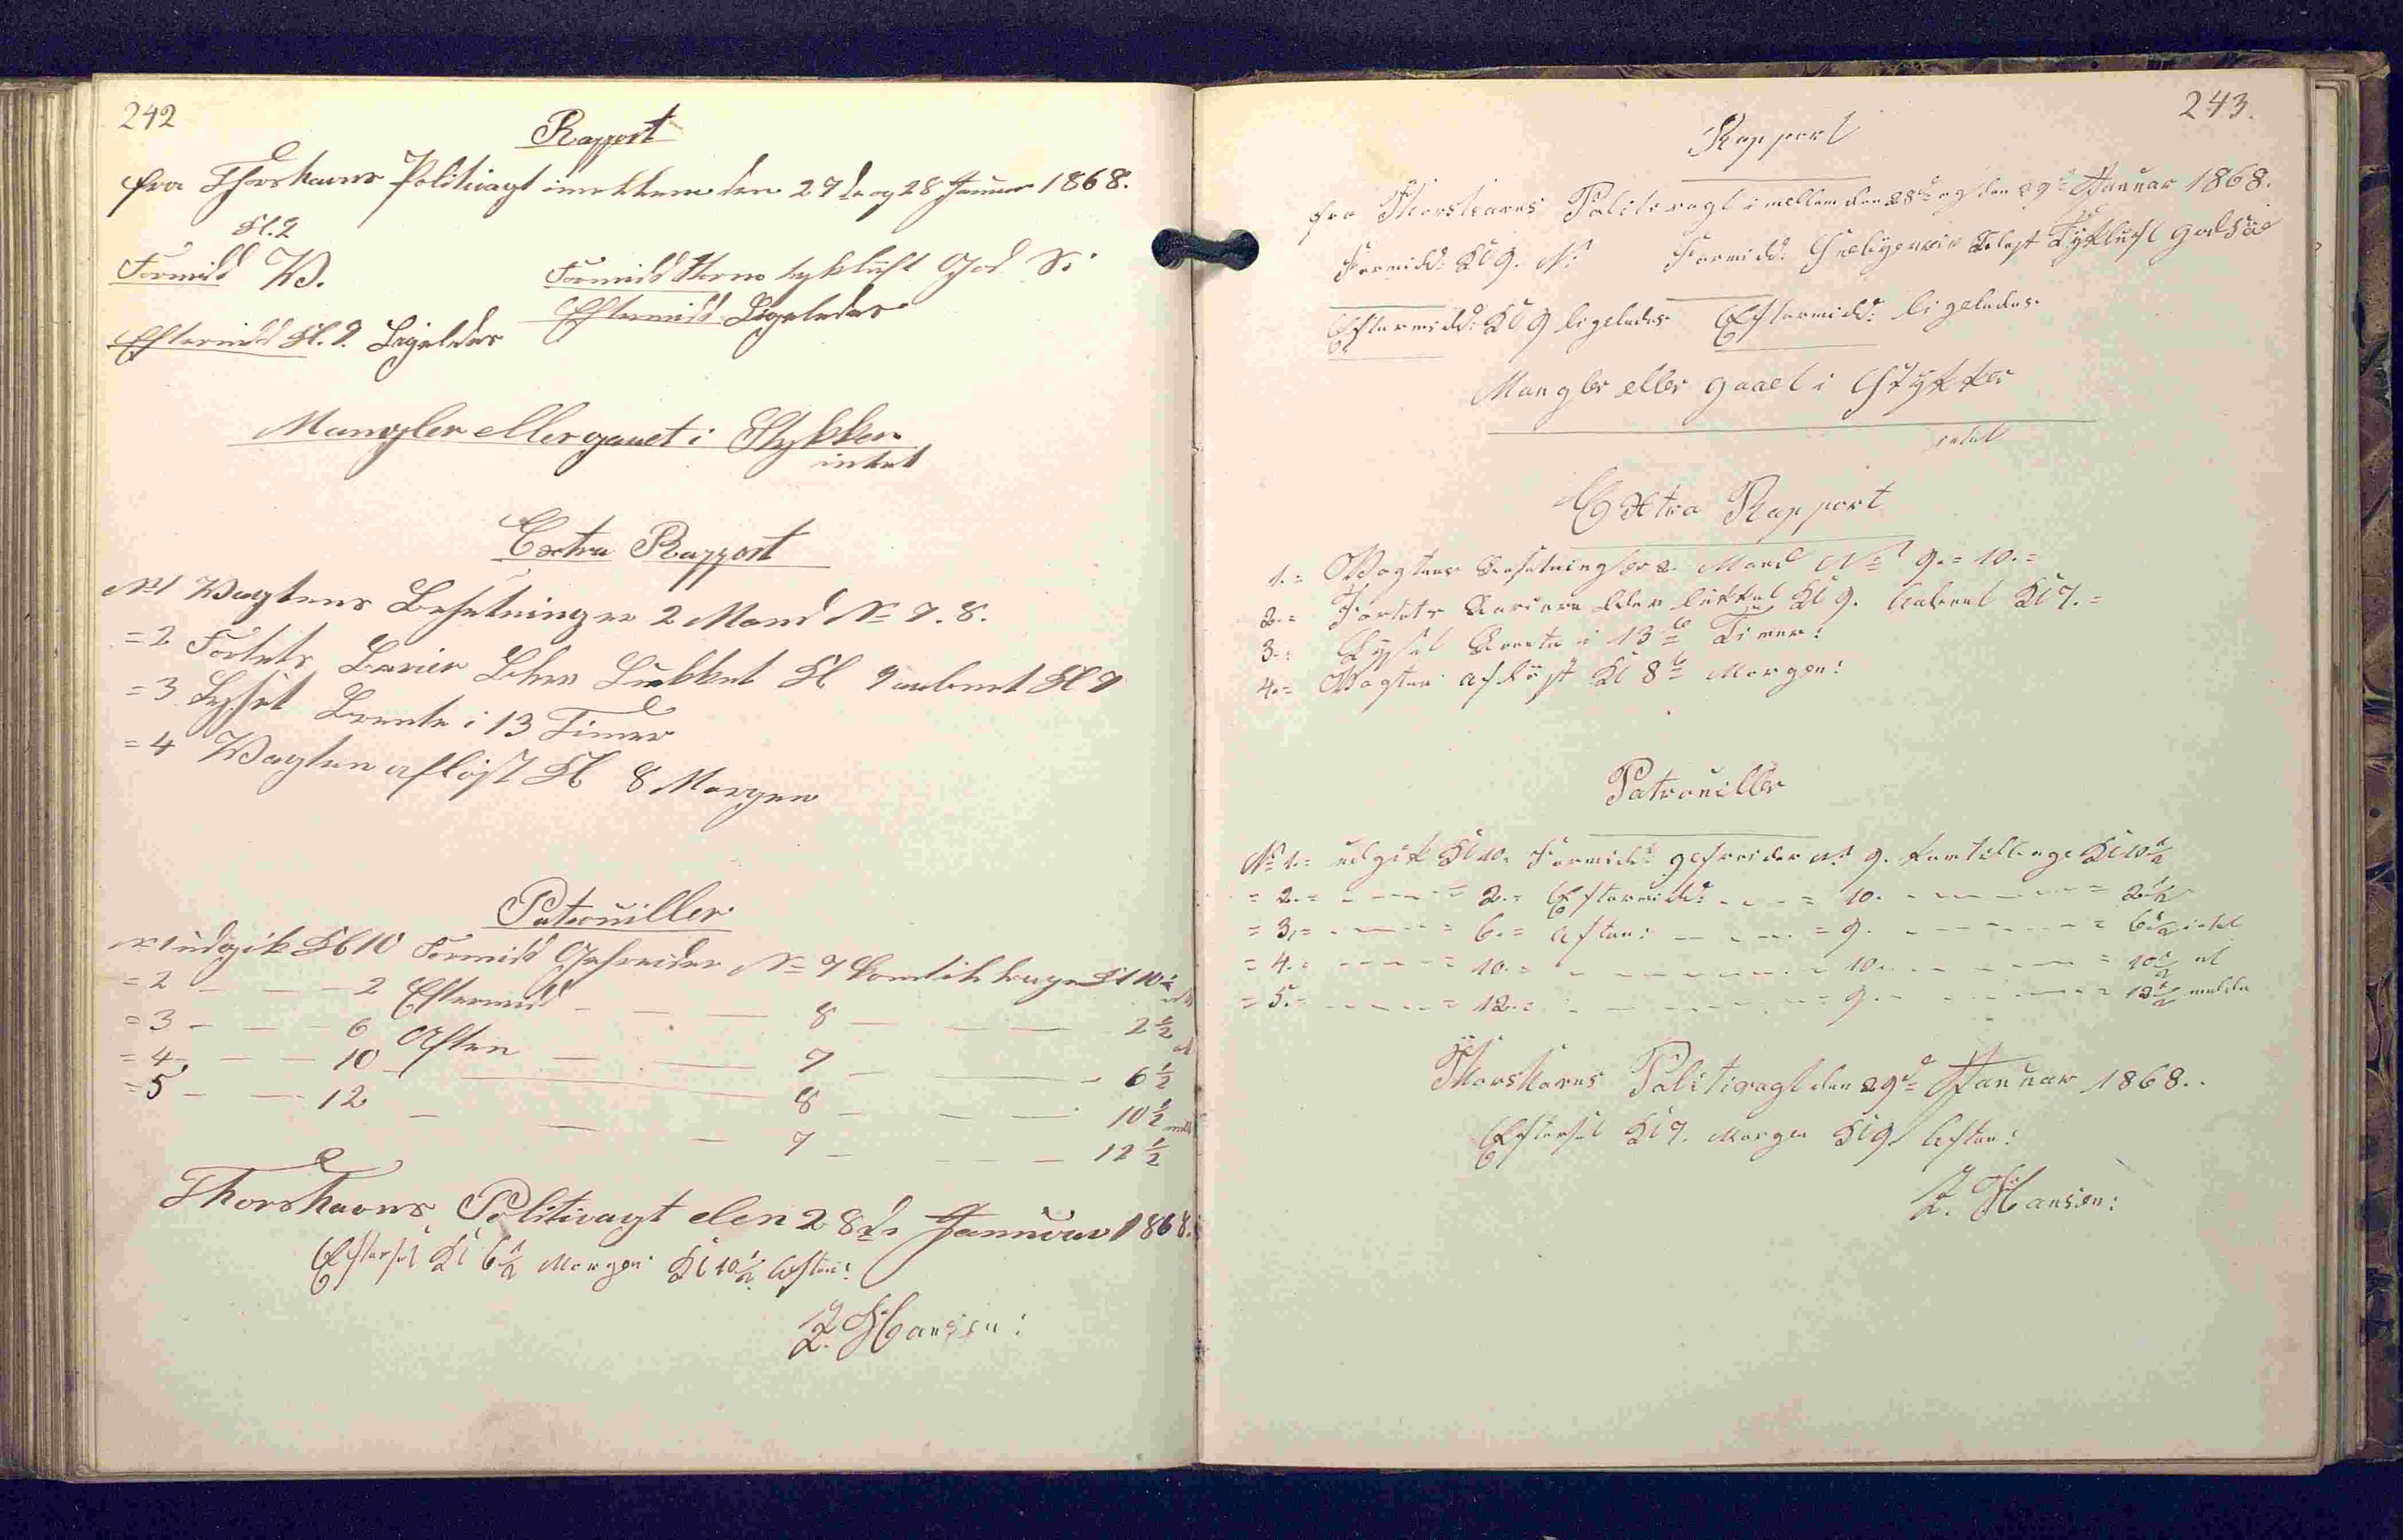 242
Rapport
fra Thorshavns Politivagt imellem den 27de og 28 Januar 1868.
Kl. 9
Formidd V.
Formidd Storm tyk Luft God Si
Eftermidd Kl. 9. Ligeledes
Eftermidd Ligeledes
Mangler eller gaaet i Stykker
intet
Extra Rapport
No 1 Vagtens Besætning er 2 Mand No 7. 8.
= 2 Fortets Barier Blev Lukket Kl 9 aabnet Kl 7
= 3 Lyset Brente i 13 Timer
= 4 Vagten afløst Kl 8 Morgen
Patrouiller
No 1 udgik Kl 10 Formidd Gefreider No 7 kom tilbage Kl 10 ½
= 2 — — — 2 Eftermidd — — — 8 — — — 2 ½
= 3 — — 6 Aften — — 7 — — — 6 ½
= 4 — — 10 — — 8 — — — 10 ½
= 5 — — 12 — — — 7 — — — 12 ½
Thorshavns Politivagt den 28de Januar 1868.
Efterset Kl 6 ½ Morgen Kl 10 ½ Aften:
J. Hansen:
243.
Rapport
fra Thorshavns Politivagt imellem den 28de og den 29de Januar 1868.
Formidd: Kl 9. N:
Formidd: Tyk Luft god Sigt
Eftermidd: Kl 9 ligeledes
Eftermidd: ligeledes.
Mangler eller gaaet i Stykker
intet
Extra Rapport
1. = Vagtens Besætning er 2. Mand No 9. = 10. =
2. = Fortets Bariere blev lukket Kl 9. Aabnet Kl 7. =
3. = Lyset Brente i 13 Timer:
4. = Vagten afløst Kl 8 Morgen:
Patrouiller
No 1. = udgik Kl 10. Formidd: gefreider No 9. kom tilbage Kl 10 ½
= 2. = - - - = 2. = Eftermidd: - - - = 10. - - - = 2 ½
= 3. = - - - = 6. = Aften: - - - = 9. - - - = 6 ½ intet
= 4. = - - - = 10. = - - - = 10. - - - = 10 ½ at
= 5. = - - - = 12. = - - - = 9. - - - = 12 ½ melde
Thorshavns Politivagt den 29de Januar 1868.
Efterset Kl 7. Morgen Kl 9. Aften:
J. Hansen: